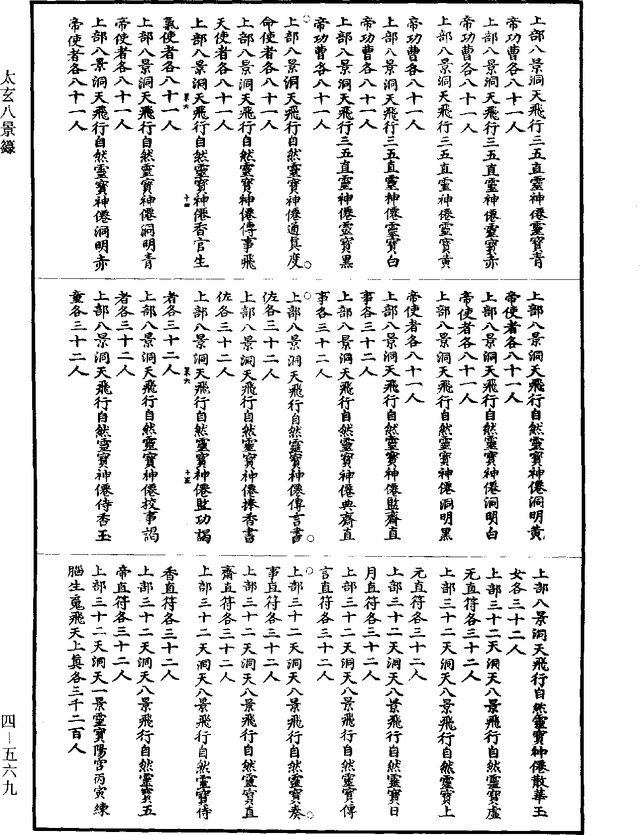 太玄八景籙
上部八景洞天飛行三五直靈神僊靈寶青
帝功曹各八十一人
上部八景洞天飛行三五直靈神僊靈寶赤
帝功曹各八十一人
上部八景洞天飛行三五直靈神僊靈寶黃
帝功曹各八十一人
上部八景洞天飛行三五直靈神僊靈寶白
帝功曹各八十一人
上部八景洞天飛行三五直靈神僊靈寶黑
帝功曹各八十一人
上部八景洞天飛行自然靈寶神僊通真度
命使者各八十一人
上部八景洞天飛行自然靈寶神僊傳事飛
天使者各八十一人
上部八景洞天飛行自然靈寶神僊香官生
第六 十四
氣使者各八十一人
上部八景洞天飛行自然靈寶神僊洞明青
帝使者各八十一人
上部八景洞天飛行自然靈寶神僊洞明赤
帝使者各八十一人
上部八景洞天飛行自然靈寶神僊洞明黃
帝使者各八十一人
上部八景洞天飛行自然靈寶神僊洞明白
帝使者各八十一人
上部八景洞天飛行自然靈寶神僊洞明黑
帝使者各八十一人
上部八景洞天飛行自然靈寶神僊監齋直
事各三十二人
上部八景洞天飛行自然靈寶神僊典齋直
事各三十二人
上部八景洞天飛行自然靈寶神僊傳言書
佐各三十二人
上部八景洞天飛行自然靈寶神僊捧香書
佐各三十二人
上部八景洞天飛行自然靈寶神僊監功謁
第六 十五
者各三十二人
上部八景洞天飛行自然靈寶神僊校事謁
者各三十二人
上部八景洞天飛行自然靈寶神僊侍香玉
童各三十二人
上部八景洞天飛行自然靈寶神僊散華玉
女各三十二人
上部三十二天洞天八景飛行自然靈寶虛
无直符各三十二人
上部三十二天洞天八景飛行自然靈寶上
元直符各三十二人
上部三十二天洞天八景飛行自然靈寶日
月直符各三十二人
上部三十二天洞天八景飛行自然靈寶傳
言直符各三十二人
上部三十二天洞天八景飛行自然靈寶奏
事直符各三十二人
上部三十二天洞天八景飛行自然靈寶直
齋直符各三十二人
上部三十二天洞天八景飛行自然靈寶侍
香直符各三十二人
上部三十二天洞天八景飛行自然靈寶五
帝直符各三十二人
上部三十二天洞天一景靈寶陽宮丙寅練
腦生嵬飛天上真各三千二百人
四—五六九